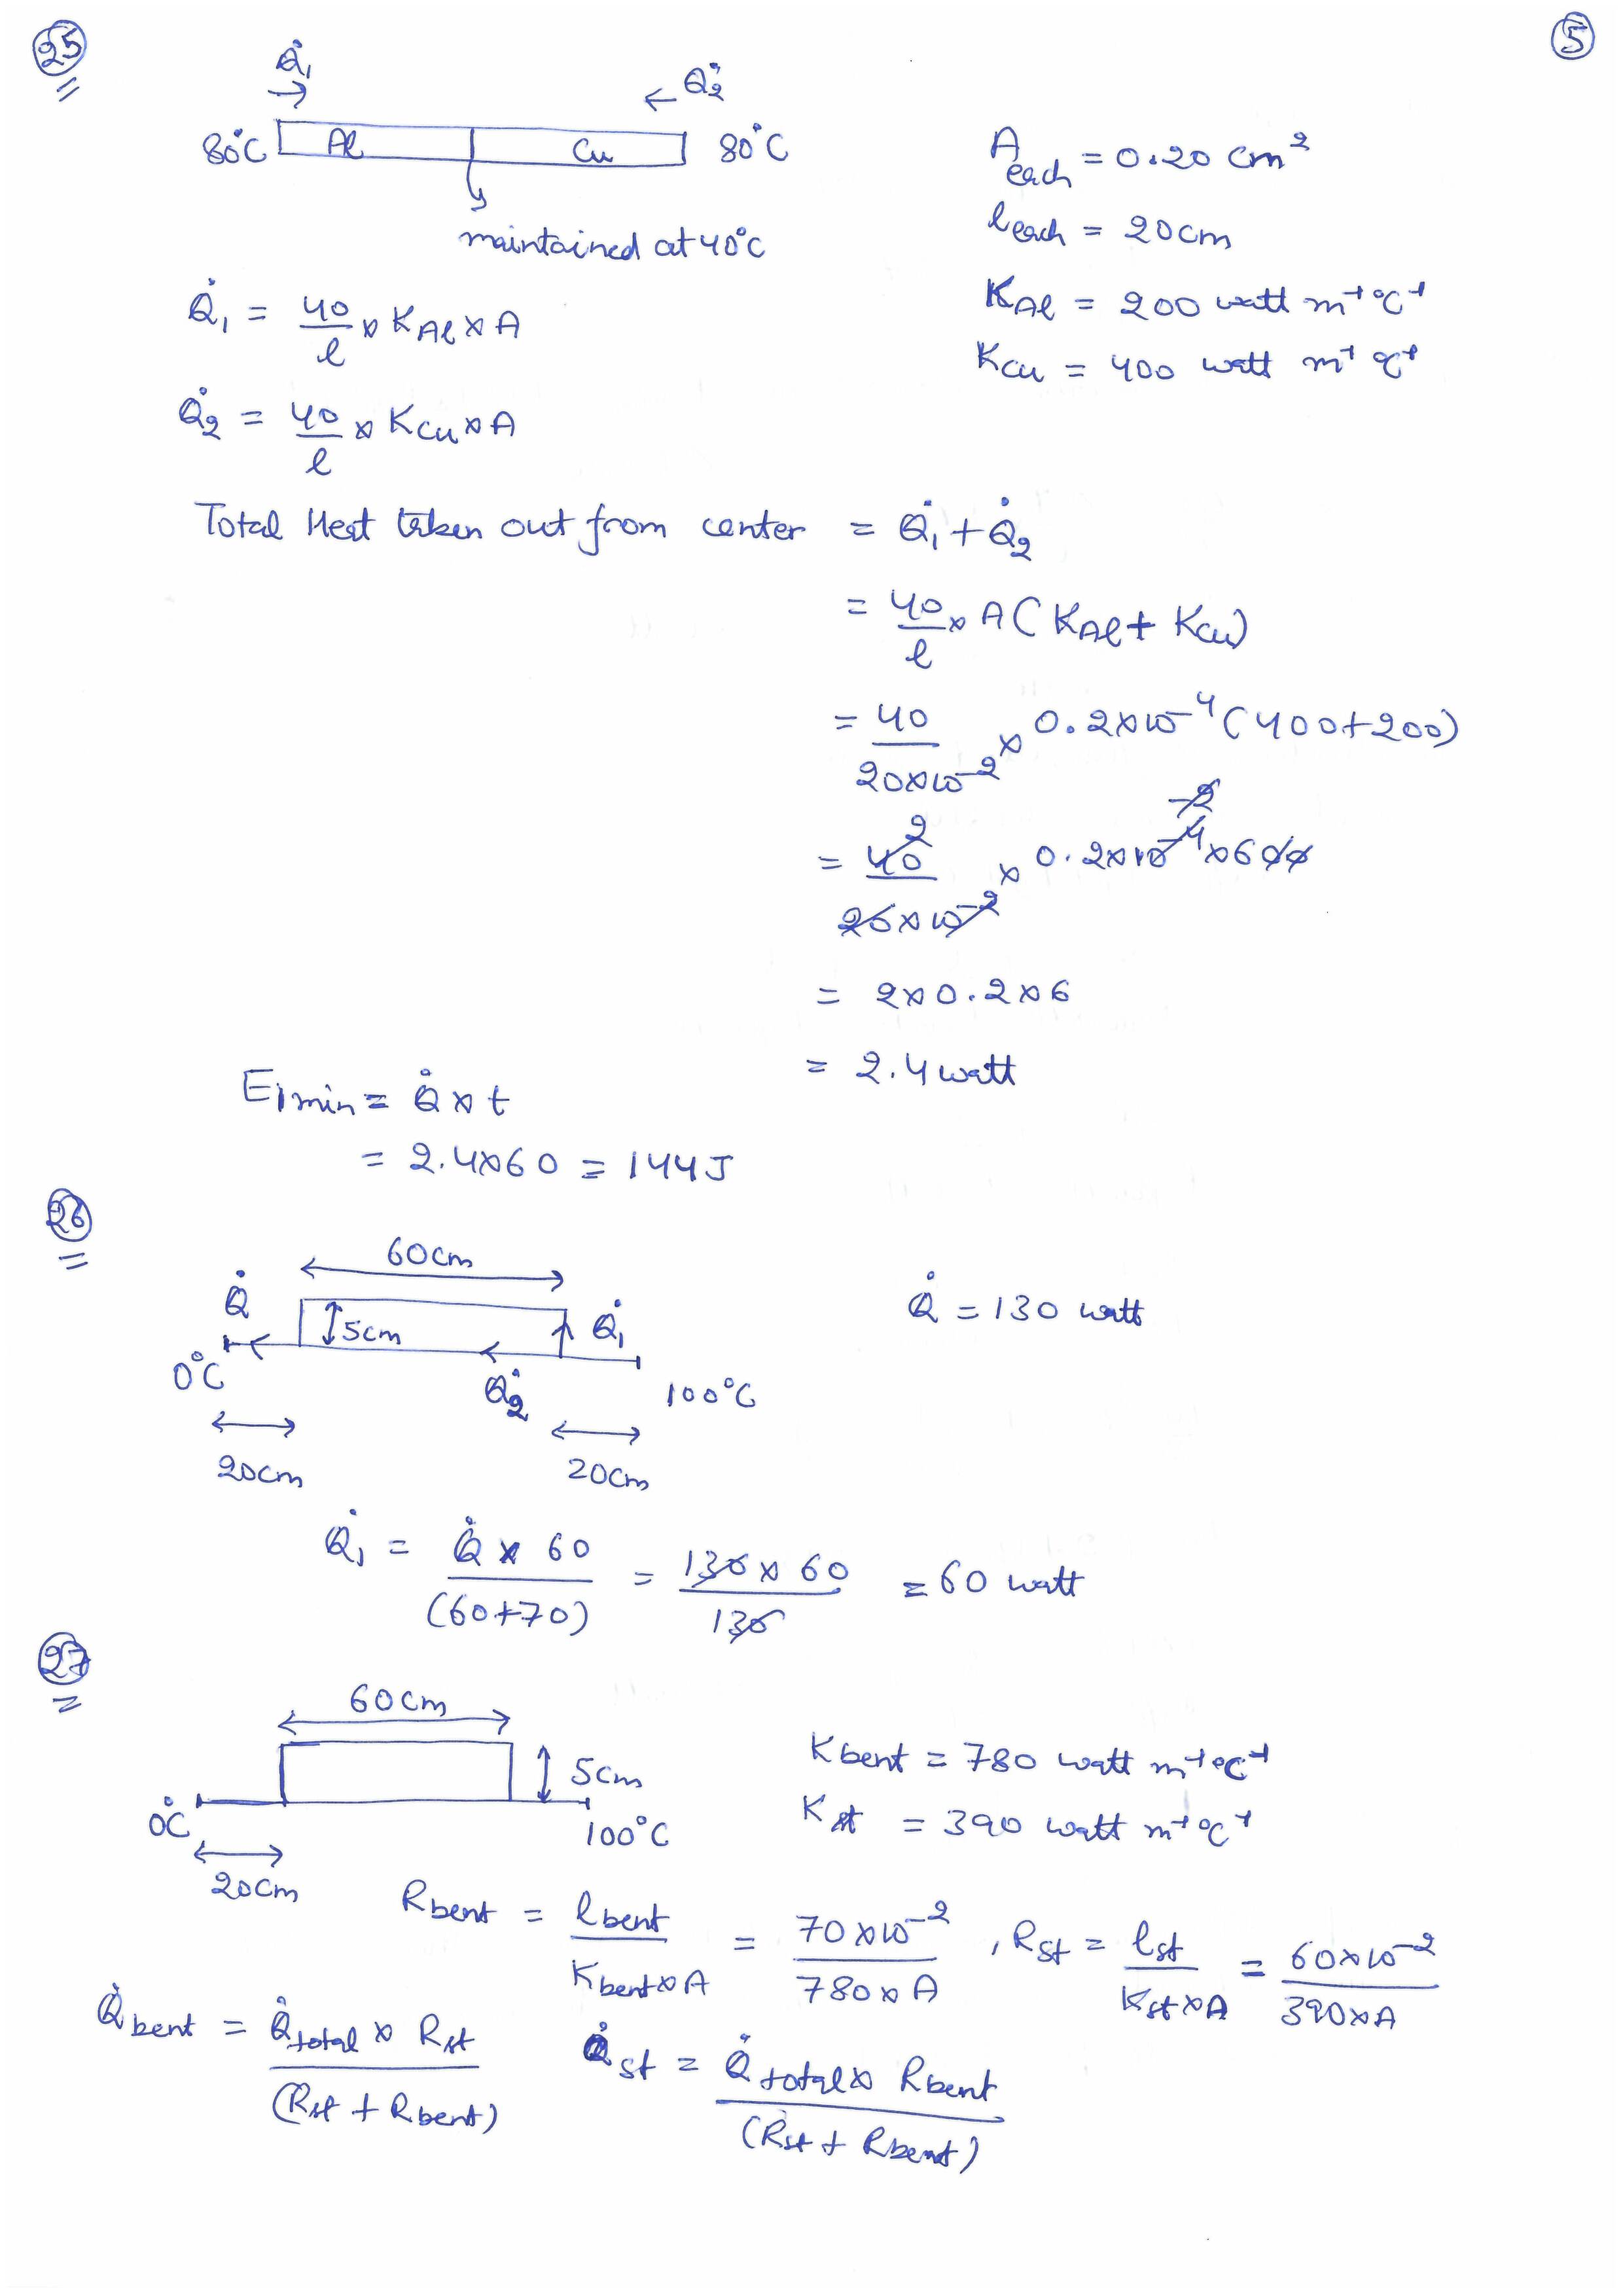 25
5
Q̇₁
← Q̇₂
80°C Al Cu 80°C
maintained at 40°C
A each = 0.20 cm²
l each = 20cm
K Al = 200 watt m⁻¹ °C⁻¹
K Cu = 400 watt m⁻¹ °C⁻¹
Q̇₁ = 40/l × K Al × A
Q̇₂ = 40/l × K Cu × A
Total Heat taken out from center = Q̇₁ + Q̇₂
= 40/l × A ( K Al + K Cu)
= 40/20×10⁻² × 0.2×10⁻⁴ (400+200)
-2
= 40 2/20×10⁻² × 0.2×10⁻⁴ × 600
= 2×0.2×6
= 2.4 watt
E 1 min = Q̇ × t
= 2.4×60 = 144J
26
60cm
Q̇ 5cm Q̇₁
Q̇ = 130 watt
0°C Q̇₂ 100°C
20cm 20cm
Q̇₁ = Q̇ × 60/(60+70) = 130 × 60/130 = 60 watt
27
60cm
5cm
K bent = 780 watt m⁻¹ °C⁻¹
0°C 100°C
K st = 390 watt m⁻¹ °C⁻¹
20cm
R bent = l bent/K bent × A = 70×10⁻²/780×A , R st = l st/K st × A = 60×10⁻²/390×A
Q̇ bent = Q̇ total × R st/(R st + R bent) Q̇ st = Q̇ total × R bent/(R st + R bent)